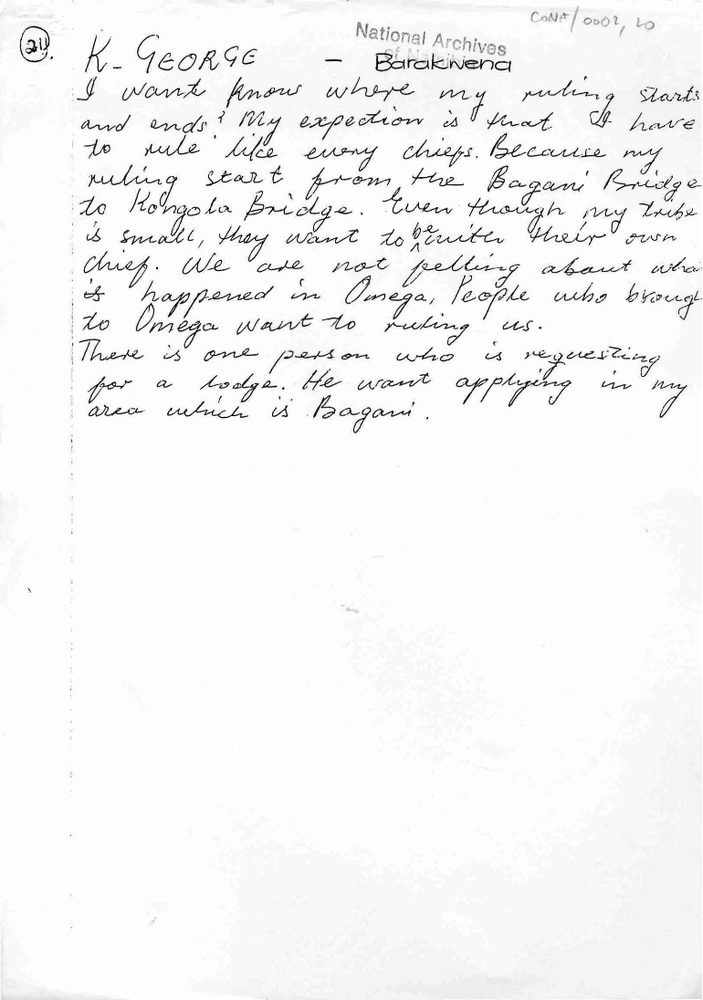 CONF/0002, 20
National Archives
of Namibia
24.
K- GEORGE - Barakwena
I want know where my ruling starts
and ends? My expection is that I have
to rule like every chiefs. Because my
ruling start from the Bagani Bridge
to Kongola Bridge. Even though my tribe
is small, they want to be with their own
chief. We are not felling about wha
is happened in Omega, People who broug
to Omega want to ruling us.
There is one person who is requesting
for a lodge. He want applying in my
area which is Bagani.